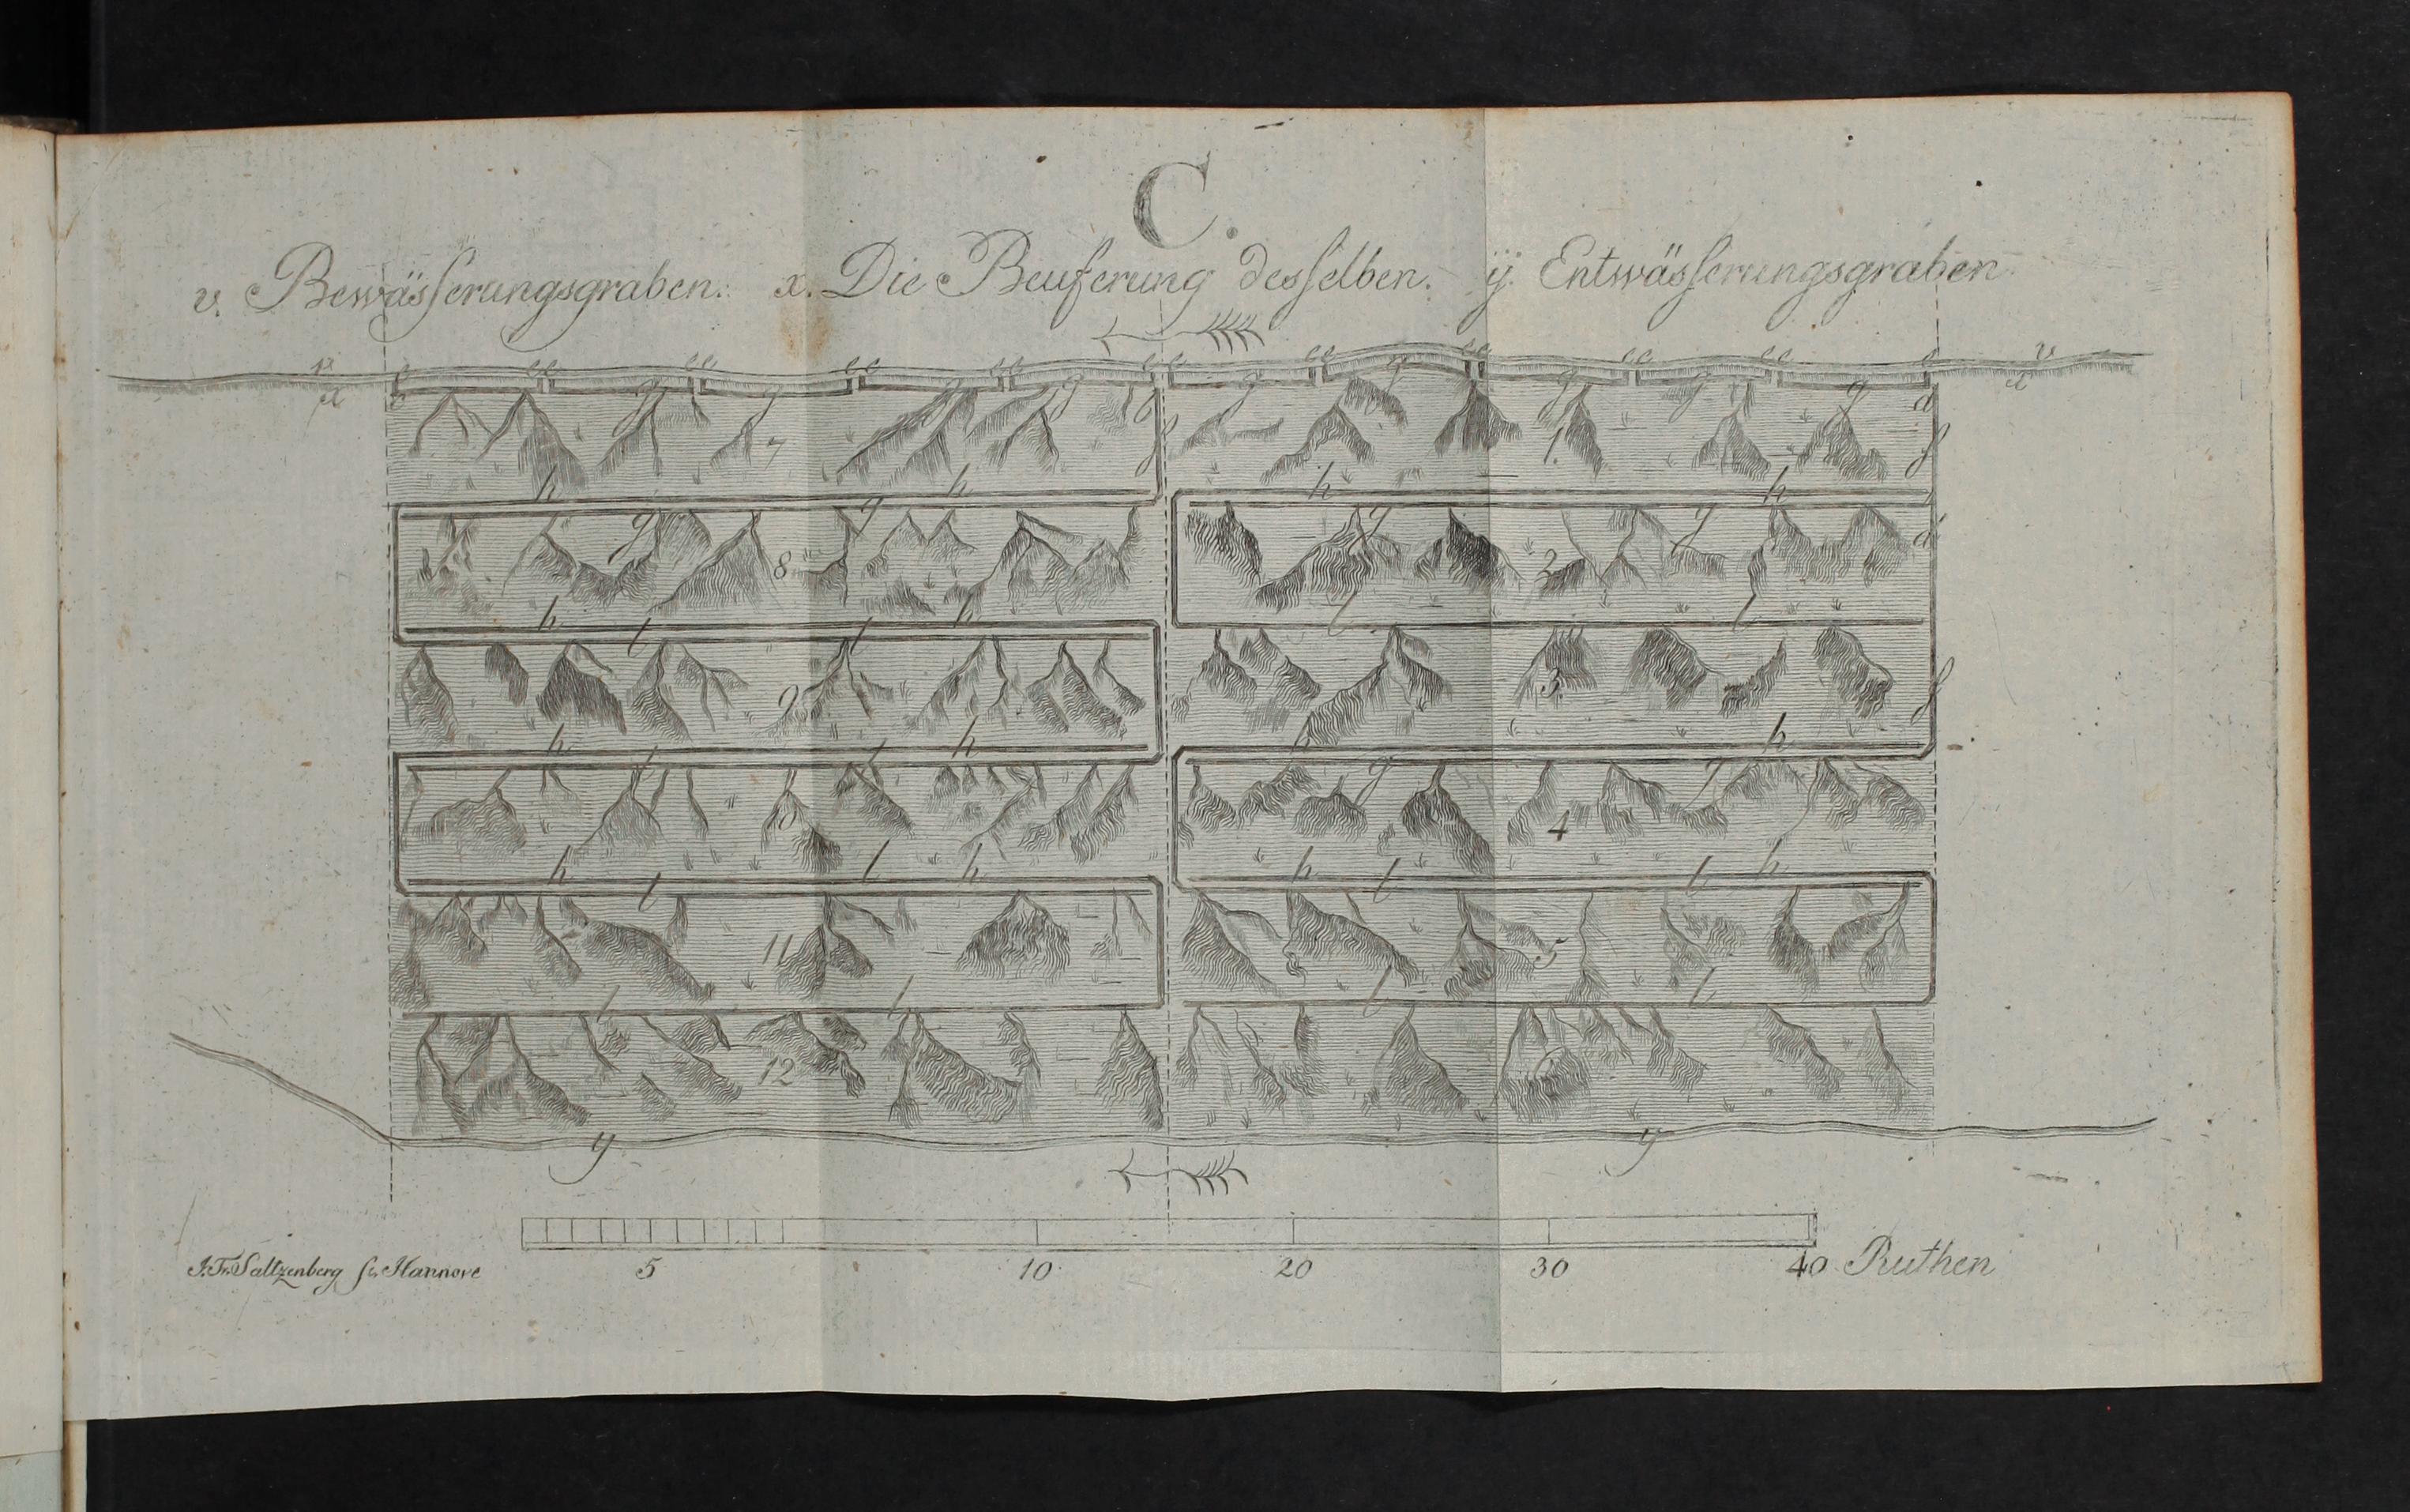 C.
v. Bewässerungsgraben. x. Die Beuferung desselben. y. Entwässerungsgraben
v v
x x
g g g g g g g g g
7 1.
h h h h
g g g g
8 2
h h l l
l l
9 3.
h h h
l l g g
10 4
h l h h h
l l l
11 5
l l l l
12 6
y y
5 10 20 30 40 Ruthen
J. Fr. Saltzenberg sc. Hannove